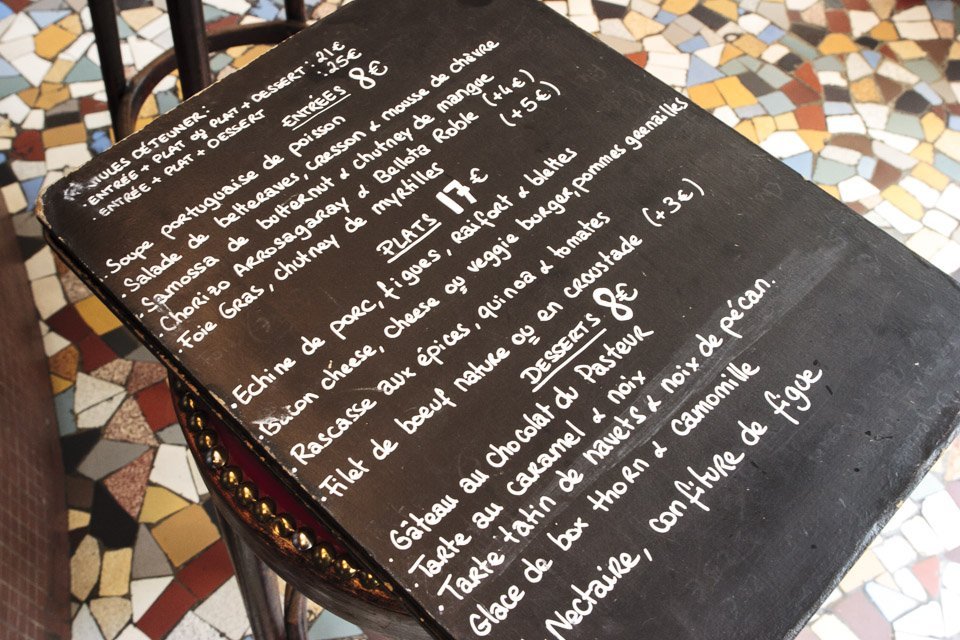 MULES DÉJEUNER:
· ENTRÉE + PLAT OU PLAT + DESSERT : 21€
· ENTRÉE + PLAT + DESSERT : 25€
ENTRÉES 8€
· Soupe portuguaise de poisson
· Salade de betteraves, cresson & mousse de chèvre
· Samossa de butternut & chutney de mangue
· Chorizo Arrosagaray & Bellota Roble (+4€)
· Foie Gras, chutney de myrtilles (+5€)
PLATS 17€
· Echine de porc, figues, raifort & blettes
· Bacon cheese, cheese ou veggie burger, pommes grenailles
· Rascasse aux épices, quinoa & tomates
· Filet de boeuf nature ou en croustade (+3€)
DESSERTS 8€
· Gâteau au chocolat du Pasteur
· Tarte au caramel & noix
· Tarte tatin de navets & noix de pécan.
Glace de box thorn & camomille
Nectaire, confiture de figue